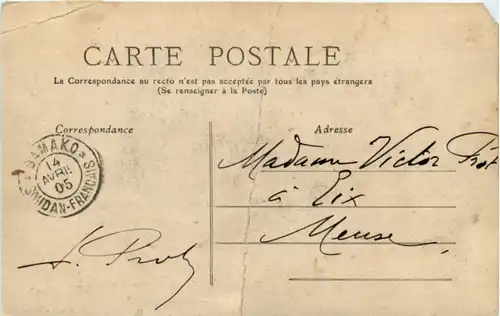 CARTE POSTALE
La Correspondance au recto n'est pas acceptée par tous les pays étrangers
(Se renseigner à la Poste)
Correspondance
Adresse
BAMAKO
14
AVRIL
05
SOUDAN-FRANÇAIS
Madame Victor Prot
à Eix
Meuse
Prot